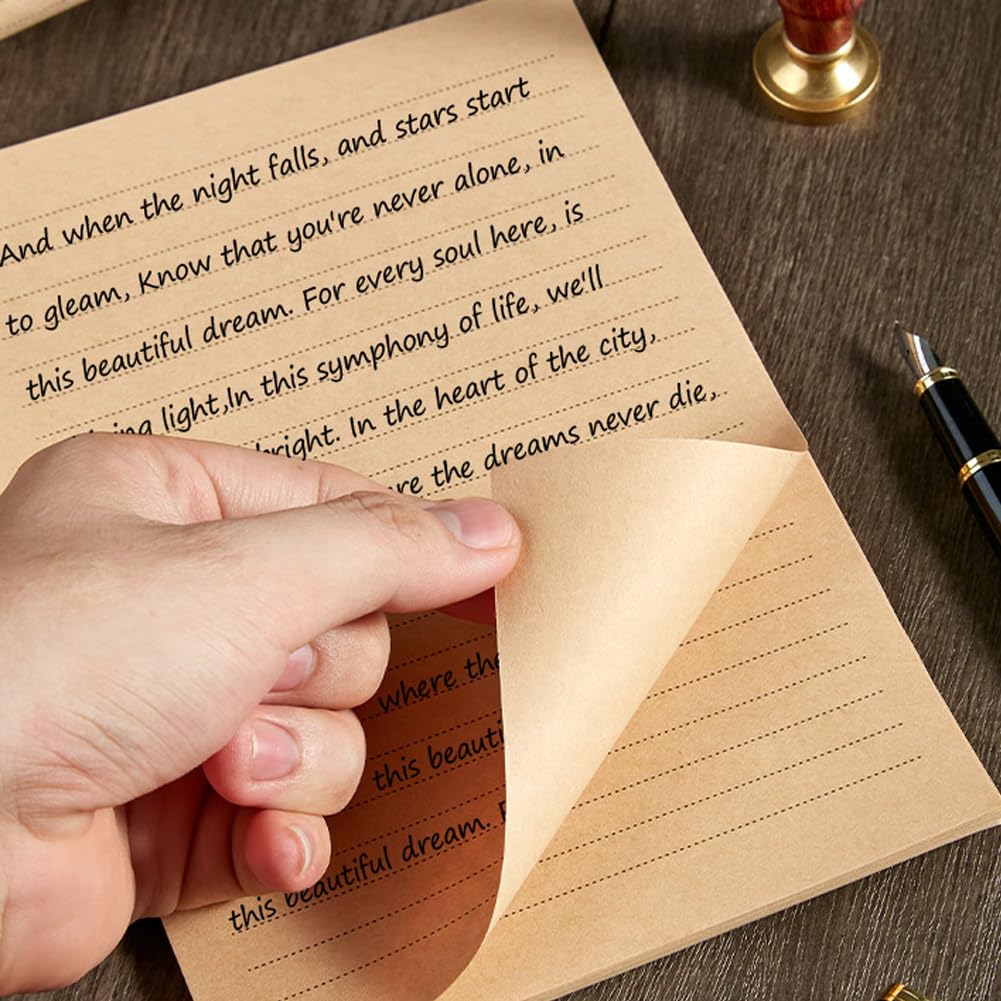 And when the night falls, and stars start
to gleam, Know that you're never alone, in
this beautiful dream. For every soul here, is
light,In this symphony of life, we'll
bright. In the heart of the city,
the dreams never die,
where the
this
this beautiful dream.